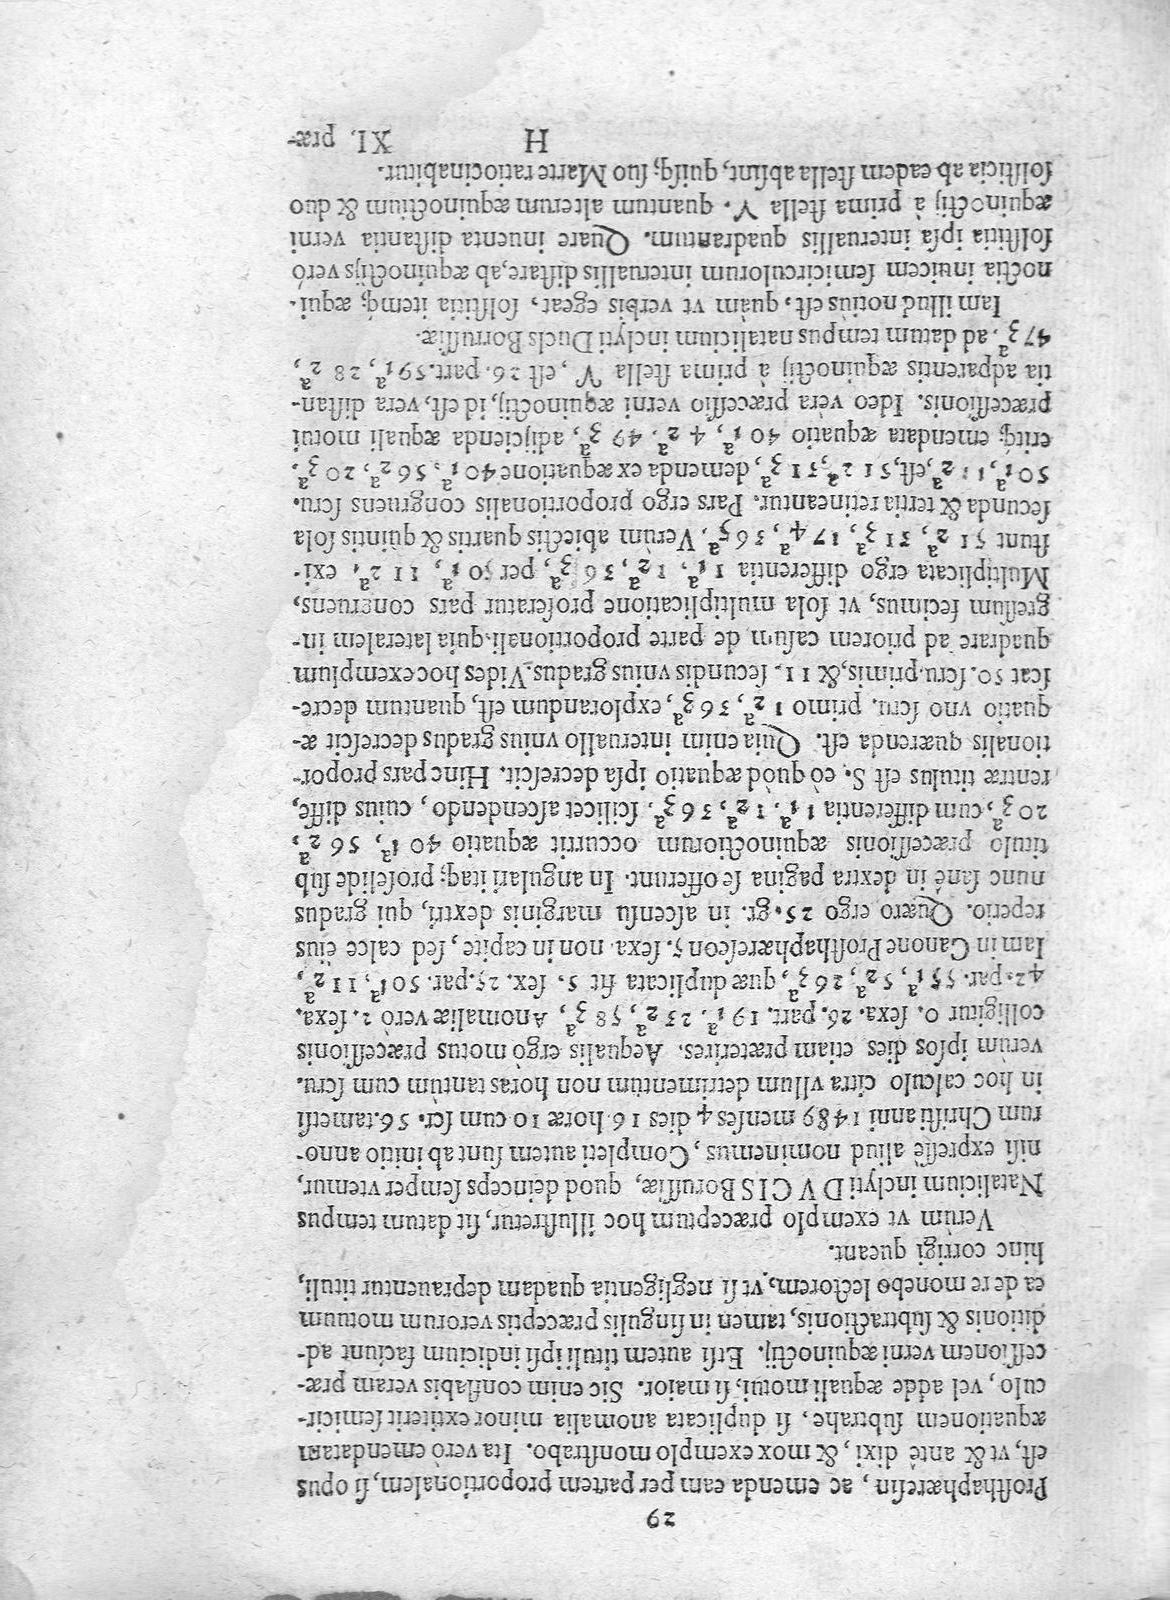 29
Prosthaphæresin, ac emenda eam per partem proportionalem, si opus
est, vt & antè dixi, & mox exemplo monstrabo. Ita verò emendatam
æquationem subtrahe, si duplicata anomalia minor extiterit semicir-
culo, vel adde æquali motui, si maior. Sic enim conflabis veram præ-
cessionem verni æquinoctij. Etsi autem tituli ipsi indicium faciunt ad-
ditionis & subtractionis, tamen in singulis præceptis verorum motuum
ea de re monebo lectorem, vt si negligentia quadam deprauentur tituli,
hinc corrigi queant.
Verùm vt exemplo præceptum hoc illustretur, sit datum tempus
Natalicium inclyti D V C I S Borussiæ, quod deinceps semper vtemur,
nisi expresse aliud nominemus, Completi autem sunt ab initio anno-
rum Christi anni 1489 menses 4 dies 16 horæ 10 cum scr. 56. tametsi
in hoc calculo citra vllum detrimentum non horas tantùm cum scru.
verùm ipsos dies etiam præterires. Aequalis ergò motus præcessionis
colligitur 0. sexa. 26. part. 19 1ª. 23 2ª, 58 3ª, Anomaliæ verò 2. sexa.
42. par. 55 1ª, 5 2ª, 26 3ª, quæ duplicata fit 5. sex. 25. par. 50 1ª, 11 2ª,
Iam in Canone Prosthaphæreseon 5. sexa. non in capite, sed calce eius
reperio. Quæro ergo 25. gr. in ascensu marginis dextri, qui gradus
nunc sanè in dextra pagina se offerunt. In angulari itaq; proselide sub
titulo præcessionis æquinoctiorum occurrit æquatio 40 1ª, 56 2ª,
20 3ª, cum differentia 1 1ª. 1 2ª, 36 3ª. scilicet ascendendo, cuius diffe,
rentræ titulus est S. eò quòd æquatio ipsa decrescit. Hinc pars propor-
tionalis quærenda est. Quia enim interuallo vnius gradus decrescit æ-
quatio vno scru. primo 1 2ª, 36 3ª, explorandum est, quantum decre-
scat 50. scru. primis, & 11. secundis vnius gradus. Vides hoc exemplum
quadrare ad priorem casum de parte proportionali. quia lateralem in-
gressum fecimus, vt sola multiplicatione proferatur pars congruens,
Multiplicata ergo differentia 1 1ª, 1 2ª, 36 3ª, per 50 1ª, 11 2ª, exi-
stunt 51 2ª, 31 3ª, 17 4ª, 36 5ª. Verùm abiectis quartis & quintis sola
secunda & tertia retineantur. Pars ergo proportionalis congruens scru.
50 1ª, 11 2ª, est, 51 2ª, 31 3ª, demenda ex æquatione 40 1ª. 56 2ª, 20 3ª.
eritq; emendata æquatio 40 1ª, 4 2ª. 49 3ª, adijcienda æquali motui
præcessionis. Ideo vera præcessio verni æquinoctij, id est, vera distan-
tia adparentis æquinoctij à prima stella ♈, est 26. part. 59 1ª, 28 2ª,
47 3ª. ad datum tempus natalicium inclyti Ducis Borrussiæ.
Iam illud notius est, quàm vt verbis egeat, solstitia itemq; æqui-
noctia inuicem semicirculorum interuallis distare, ab æquinoctijs verò
solstitia ipsa interuallis quadrantum. Quare inuenta distantia verni
æquinoctij à prima stella ♈. quantum alterum æquinoctium & duo
solsticia ab eadem stella absint, quisq; suo Marte ratiocinabitur.
H XI. præ-